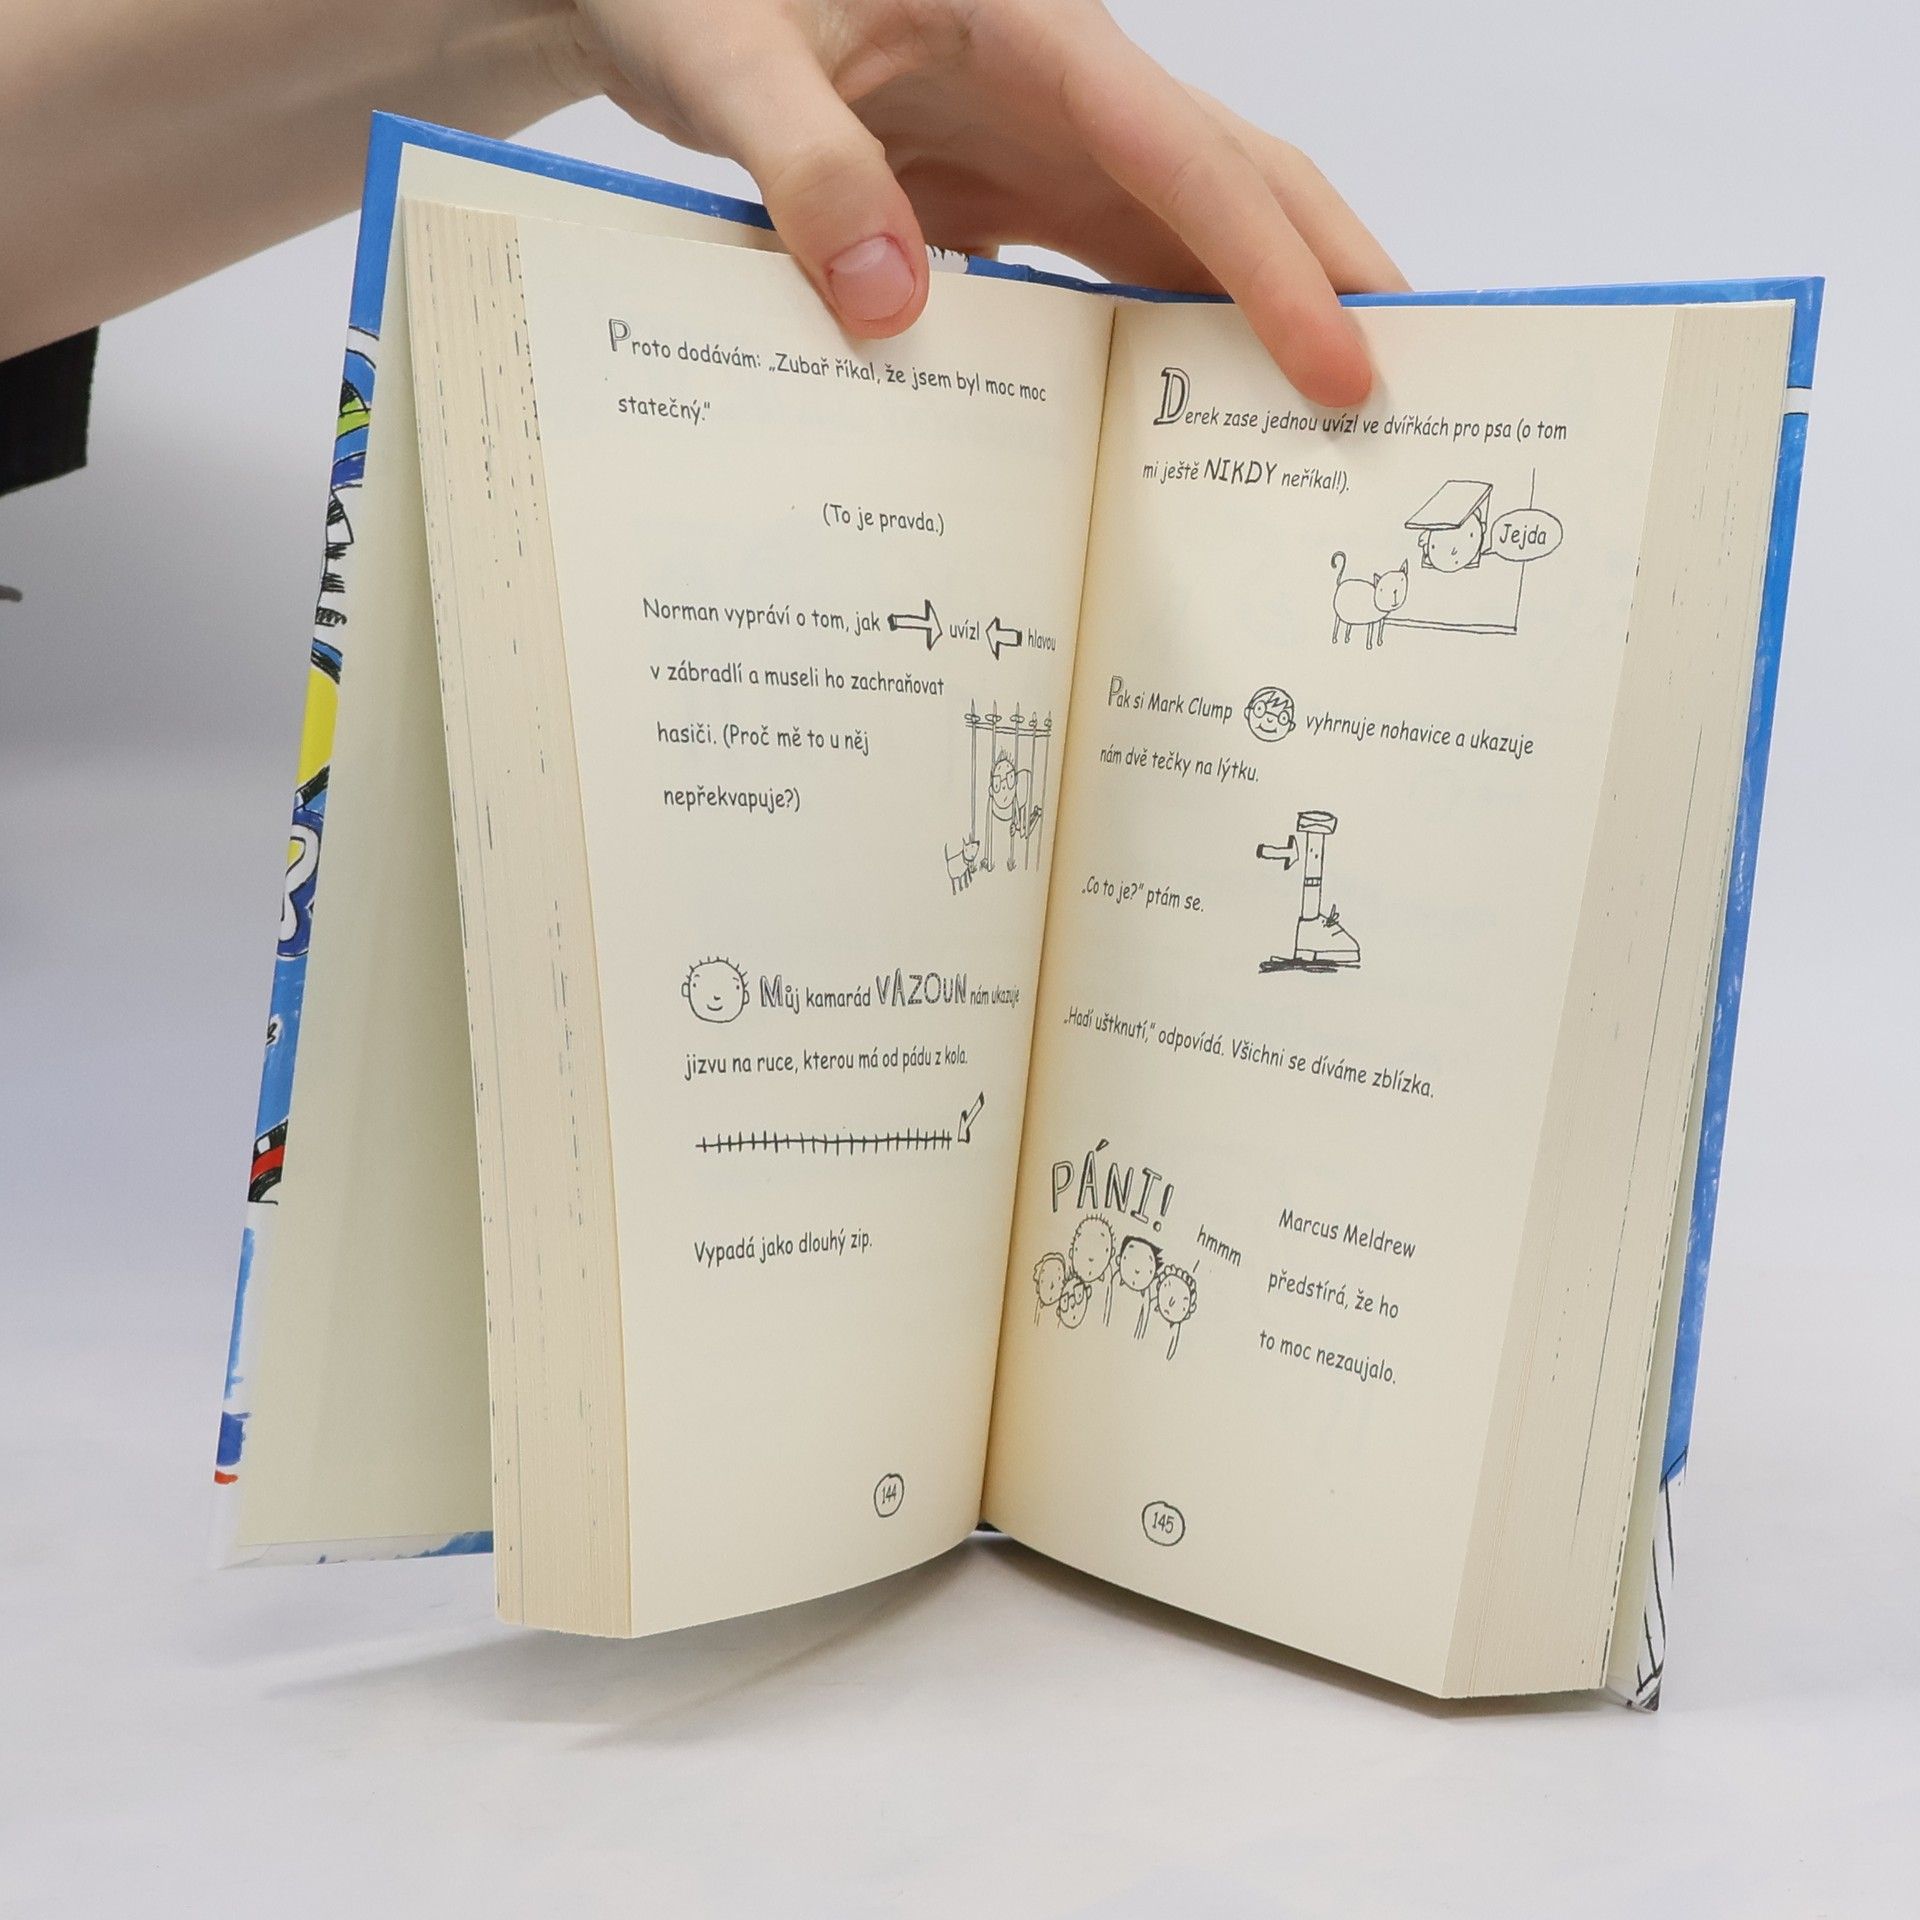 Proto dodávám: „Zubař říkal, že jsem byl moc moc
statečný."
(To je pravda.)
Norman vypráví o tom, jak uvízl hlavou
v zábradlí a museli ho zachraňovat
hasiči. (Proč mě to u něj
nepřekvapuje?)
Můj kamarád VAZOUN nám ukazuje
jizvu na ruce, kterou má od pádu z kola.
Vypadá jako dlouhý zip.
144
Derek zase jednou uvízl ve dvířkách pro psa (o tom
mi ještě NIKDY neříkal!).
Jejda
Pak si Mark Clump vyhrnuje nohavice a ukazuje
nám dvě tečky na lýtku.
„Co to je?" ptám se.
„Hadí uštknutí," odpovídá. Všichni se díváme zblízka.
PÁNI!
hmmm
Marcus Meldrew
předstírá, že ho
to moc nezaujalo.
145